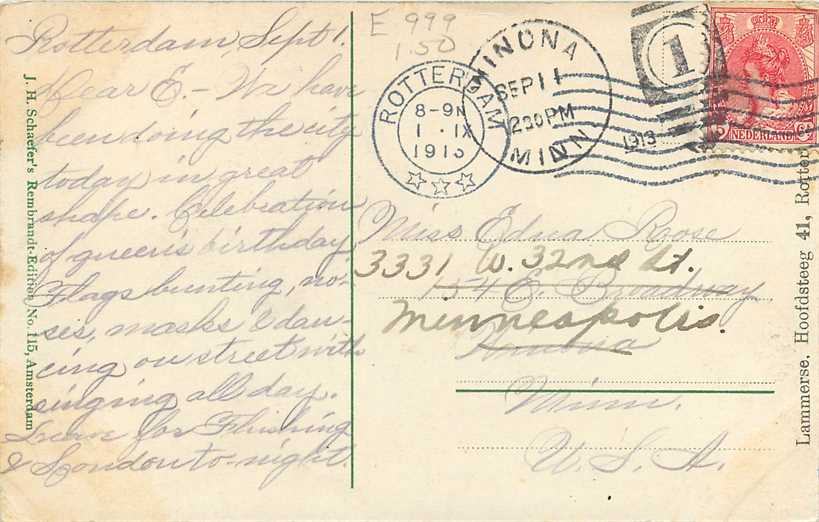 Rotterdam, Sept 1.
Dear E. - We have
been doing the city
today in great
shape. Celebration
of queen's birthday
Flags bunting, noi-
ses, masks & dan-
cing on street with
singing all day.
Leave for Flushing
& London to-night.
J. H. Schaefer's Rembrandt-Edition No. 115, Amsterdam
E 999
1.50
ROTTERDAM
8-9N
1 . IX
1913
WINONA
SEP 11
2 30 PM
MINN
1913
1
NEDERLAND
Miss Edna Roose
3331 W. 32nd St.
154 E. Broadway
Minneapolis.
Winona
Minn.
U. S. A.
Lammerse, Hoofdsteeg 41, Rotter